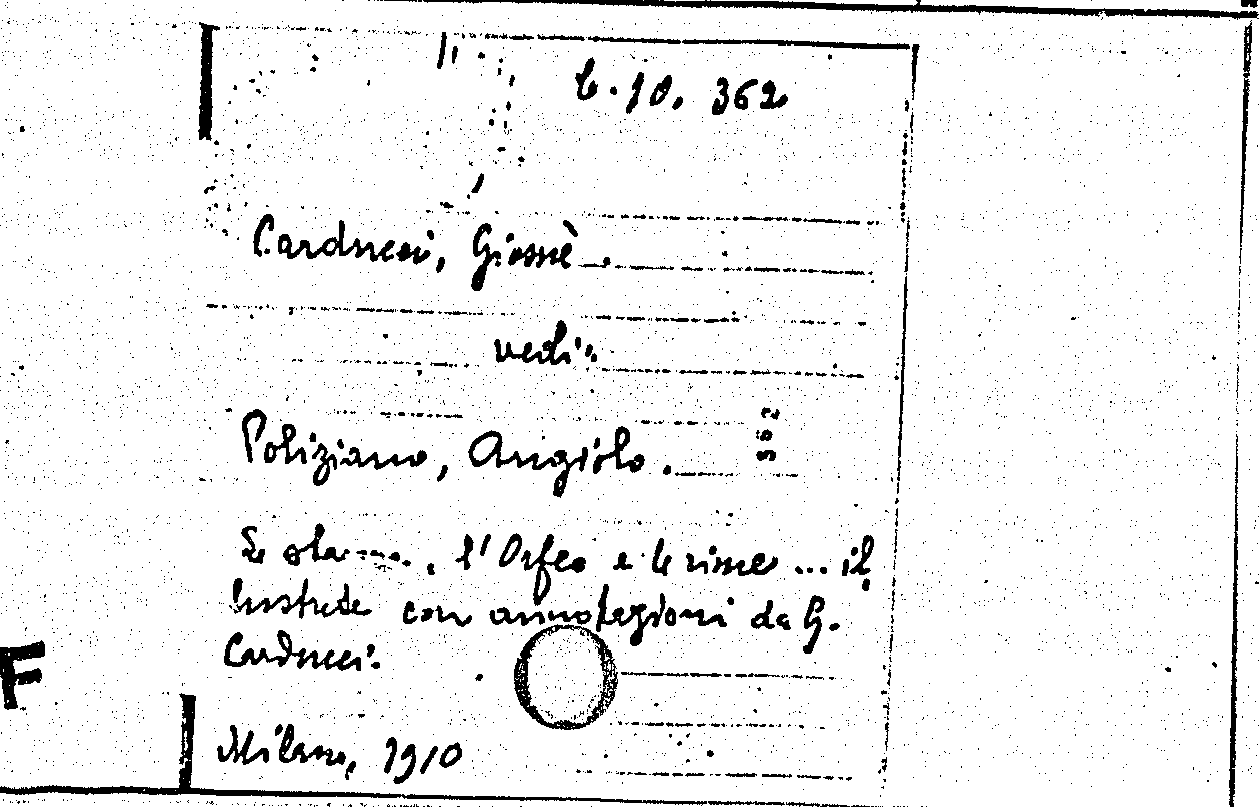 6.10.362
Carducci, Giosuè.
vedi:
Poliziano, Angiolo.
362
Le stanze, l'Orfeo e le rime ... il
lustrate con annotazioni da G.
Carducci.
F
Milano, 1910